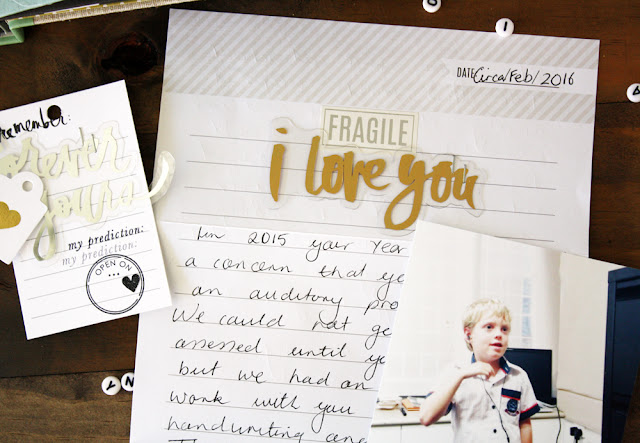 DATE: Circa/Feb/2016
FRAGILE
i love you
remember:
forever
yours
my prediction:
my prediction:
OPEN ON
...
In 2015 your Year
a concern that
an auditory
We could not
assessed until
but we had an
work with you
handwriting